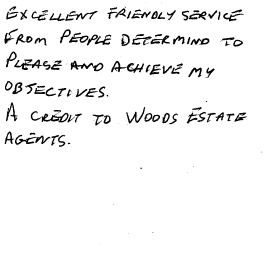 EXCELLENT FRIENDLY SERVICE
FROM PEOPLE DETERMIND TO
PLEASE AND ACHIEVE MY
OBJECTIVES.
A CREDIT TO WOODS ESTATE
AGENTS.